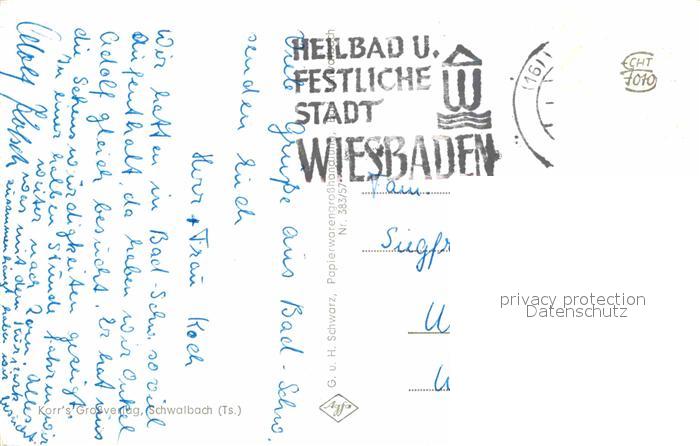 HEILBAD U.
FESTLICHE
STADT
WIESBADEN
(16)
ECHT
7010
Gute Grüße aus Bad-Schw.
senden Euch
Herr + Frau Koch
Wir hatten in Bad-Schw. so viel
Aufenthalt, da haben wir Onkel
Adolf gleich besucht. Er hat uns
die Sehenswürdigkeiten gezeigt.
In einer halben Stunde fahren wir
weiter nach
was mit dem
zusammenhängt haben wir
Adolf
Fam.
Siegfr
U
G. u. H. Schwarz, Papierwarengroßhandlung,
Nr. 383/57
Agfa
Korr's Großverlag, Schwalbach (Ts.)
privacy protection
Datenschutz